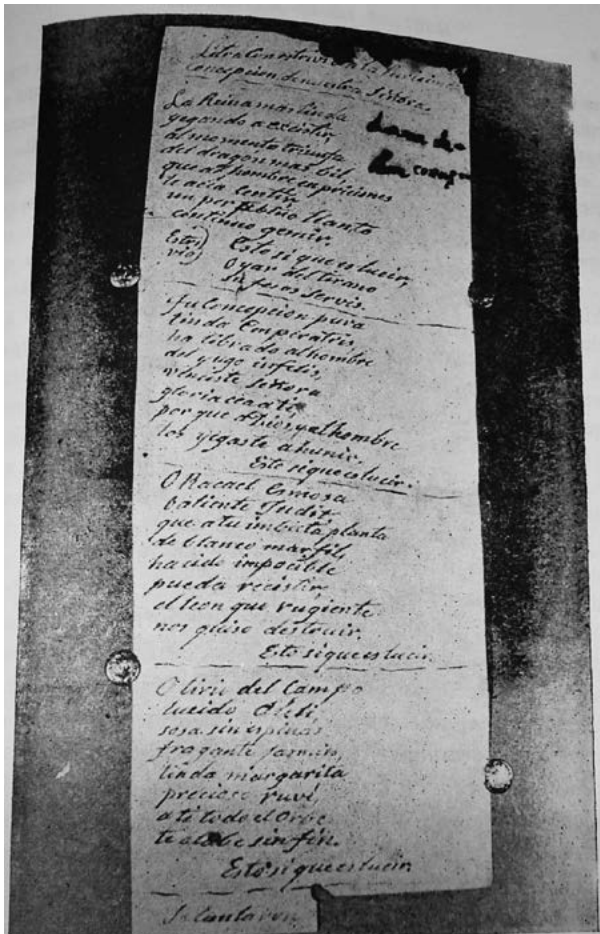 Letra Con estrivi en la Puricima
concepcion de nuestra Señora.
La Reina mas linda
yegando a exsistir,
al momento triunfa
del dragon mas bil
que al hombre en priciones
le acia centir
un perpetuo llanto
continuo gemir.
Estri
vio) Esto si que es lucir,
O yar del tirano
Tu Concepcion pura
linda Emperatris,
ha librado al hombre
del yugo infelis,
Señora
gloria cea a ti,
por que a Dios y al hombre
los yegaste a hunir.
Esto si que es lucir.
O Racael Ermosa
baliente Judit
que a tu imbicta planta
de blanco marfil,
ha cido impocible
pueda recistir,
el leon que rugiente
nos quiso destruir.
Esto si que es lucir.
O lirio del Campo
lucido
rosa sin espinas
fragante Jasmin,
linda margarita
precioso ruvi
a ti todo el Orve
te alabe sin fin.
Esto si que es lucir.